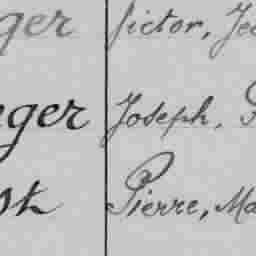 ger Victor, Je
eger Joseph, F
st Pierre, Ma